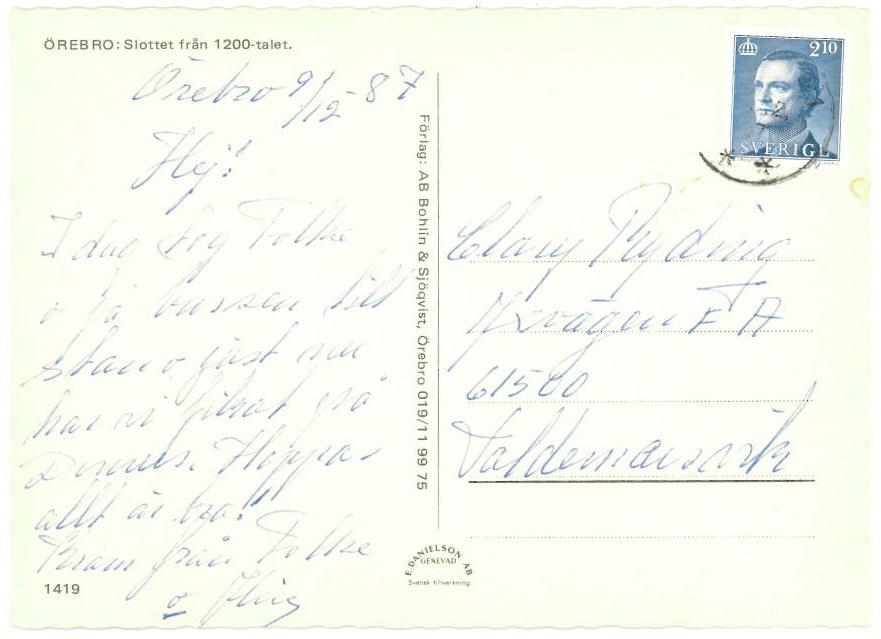 ÖREBRO: Slottet från 1200-talet.
Örebro 9/12-87
Hej!
I dag tog Folke
o ja bussen till
stan o just nu
har vi fikat på
Domus. Hoppas
allt är bra!
Kram från Folke
o
1419
Förlag: AB Bohlin & Sjöqvist, Örebro 019/11 99 75
E. DANIELSON AB
GENEVAD
Svensk tillverkning
2 10
SVERIGE
Clary Ryding
61500
Valdemarsvik